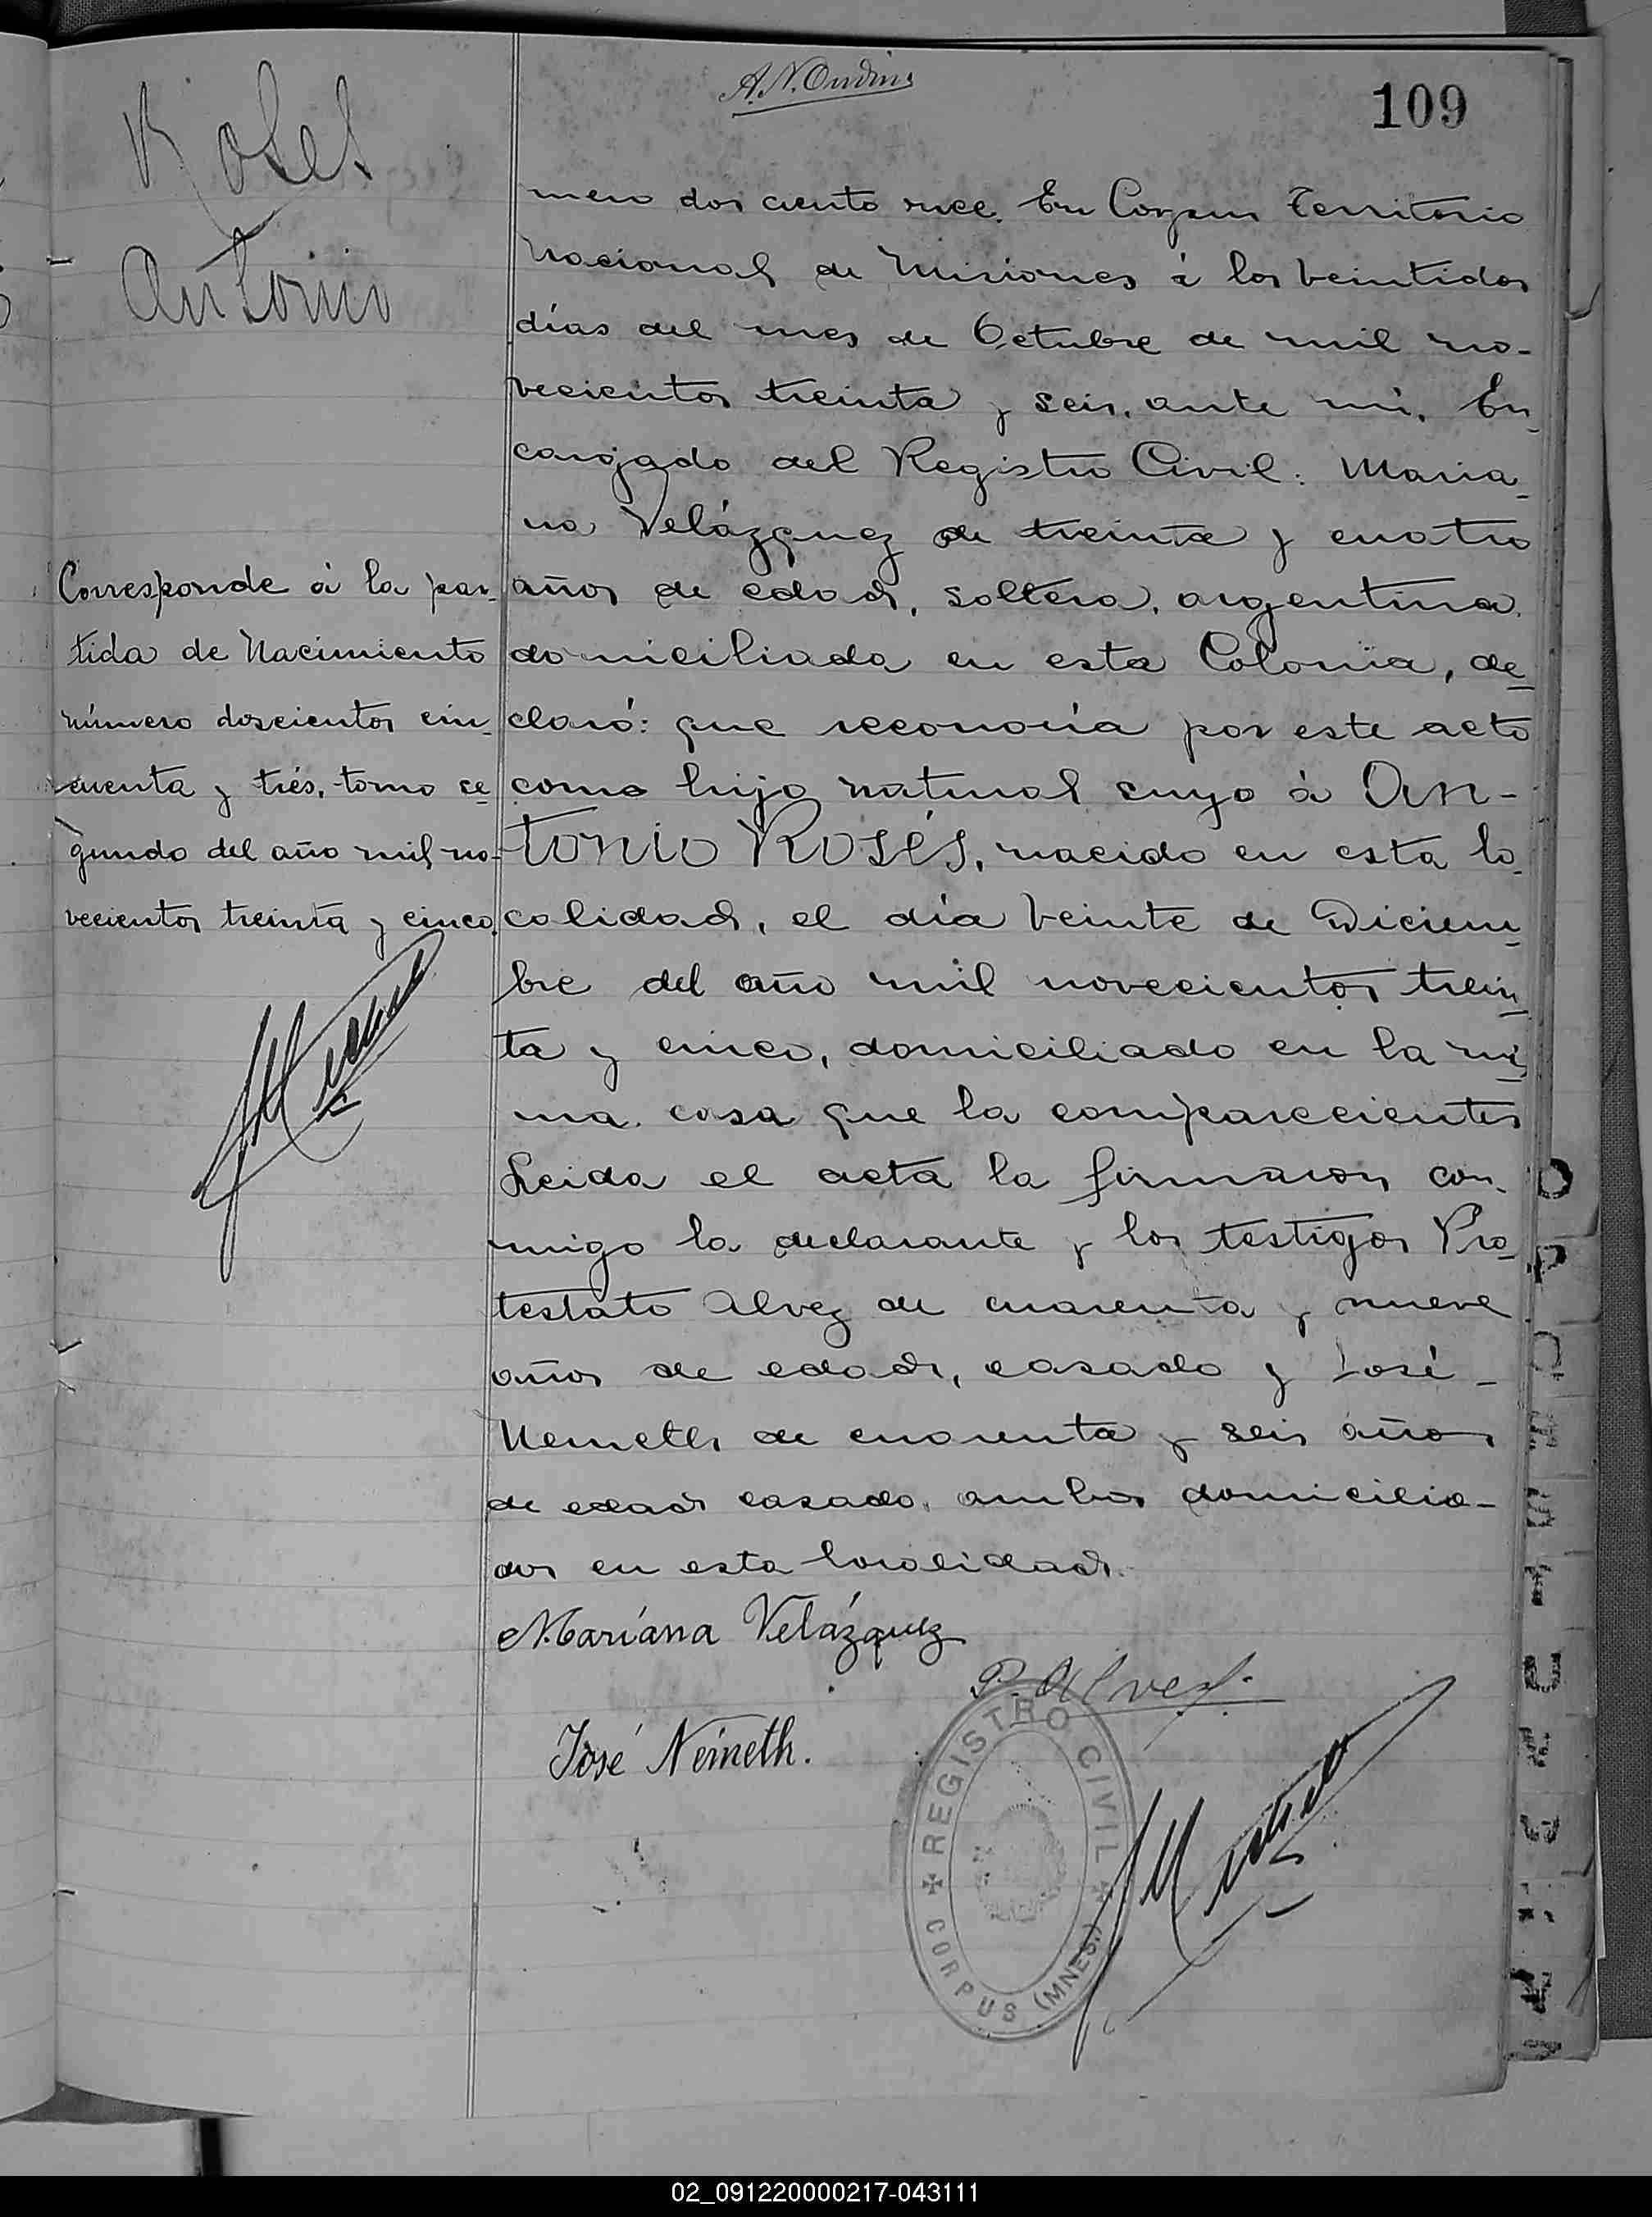 109
Roses
Antonio
Corresponde á la par-
tida de Nacimiento
número doscientos cin-
cuenta y trés, tomo se-
gundo del año mil no-
vecientos treinta y cinco.
mero dos ciento once. En Corpus Territorio
Nacional de Misiones á los veintidos
días del mes de Octubre de mil no-
vecientos treinta y seis, ante mí, En-
cargado del Registro Civil: Maria-
na Velázquez de treinta y cuatro
años de edad, soltera, argentina,
domiciliada en esta Colonia, de-
claró: que reconocía por este acto
como hijo natural suyo á An-
tonio Rosés, nacido en esta lo-
calidad, el día veinte de Diciem-
bre del año mil novecientos trein-
ta y cinco, domiciliado en la mi-
ma casa que la comparecientes
Leida el acta la firmaron con-
migo la declarante y los testigos Pro-
testato Alvez de cuarenta y nueve
años de edad, casado y José -
Nemeth de cuarenta y seis años
de edad casado, ambos domicilia-
dos en esta localidad.
Mariana Velázquez
P. Alvez.
José Németh.
REGISTRO CIVIL
CORPUS (MNES.)
02_091220000217-043111